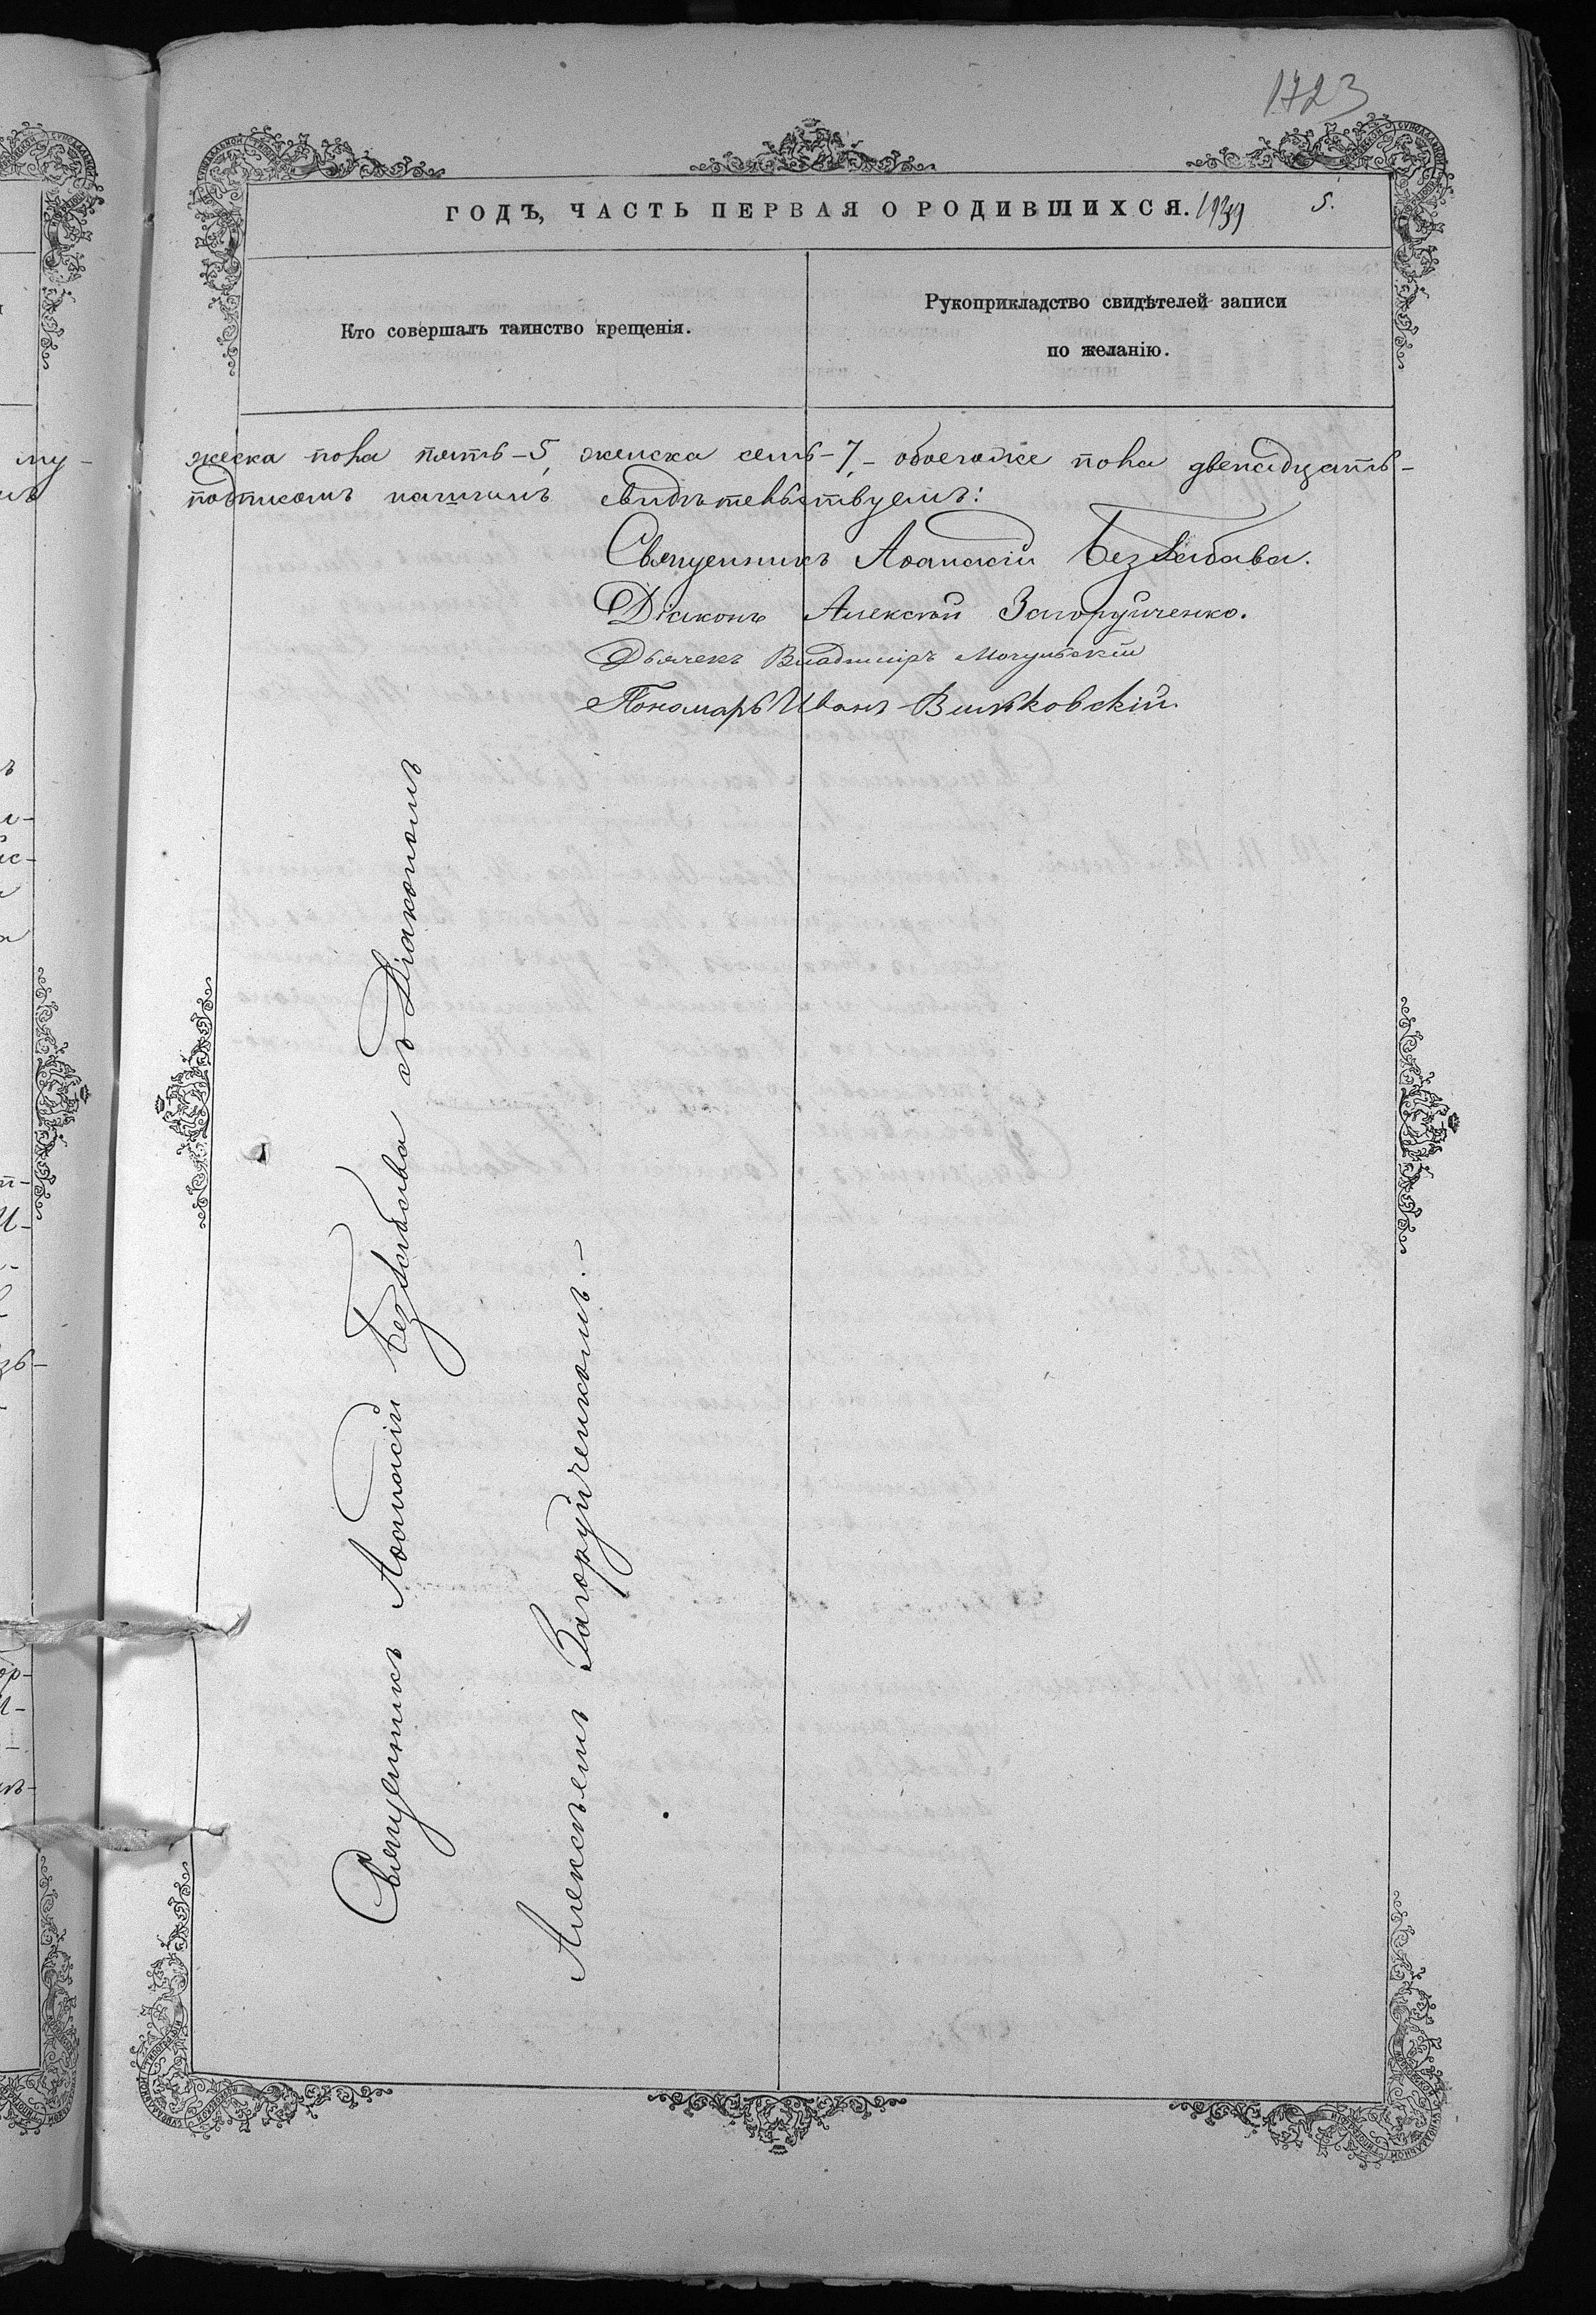 1723
ГОДЪ, ЧАСТЬ ПЕРВАЯ О РОДИВШИХСЯ.
5.
Кто совершалъ таинство крещенія.
Рукоприкладство свидѣтелей записи
по желанію.
му-
жеска пола пять-5, женска семь-7,- обоегоже пола двенадцать-
подписомъ нашимъ свидѣтельствуемъ:
Священникъ Аѳанасій Беззабава.
Діаконъ Алексѣй Загоруйченко.
Дьячекъ Владиміръ Могульскій
Пономарь Иванъ Вильковскій.
Священникъ Аѳанасій Беззабава съ Діакономъ
Алексѣемъ Загоруйченкомъ.-